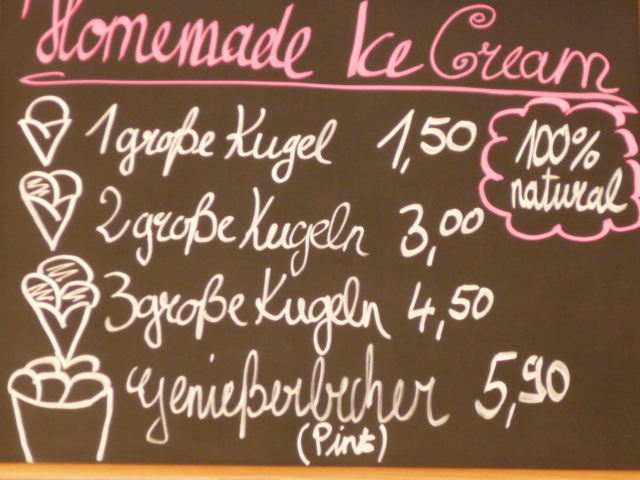 Homemade Ice Cream
1 große Kugel 1,50
100%
natural
2 große Kugeln 3,00
3 große Kugeln 4,50
Genießerbecher 5,90
(Pint)